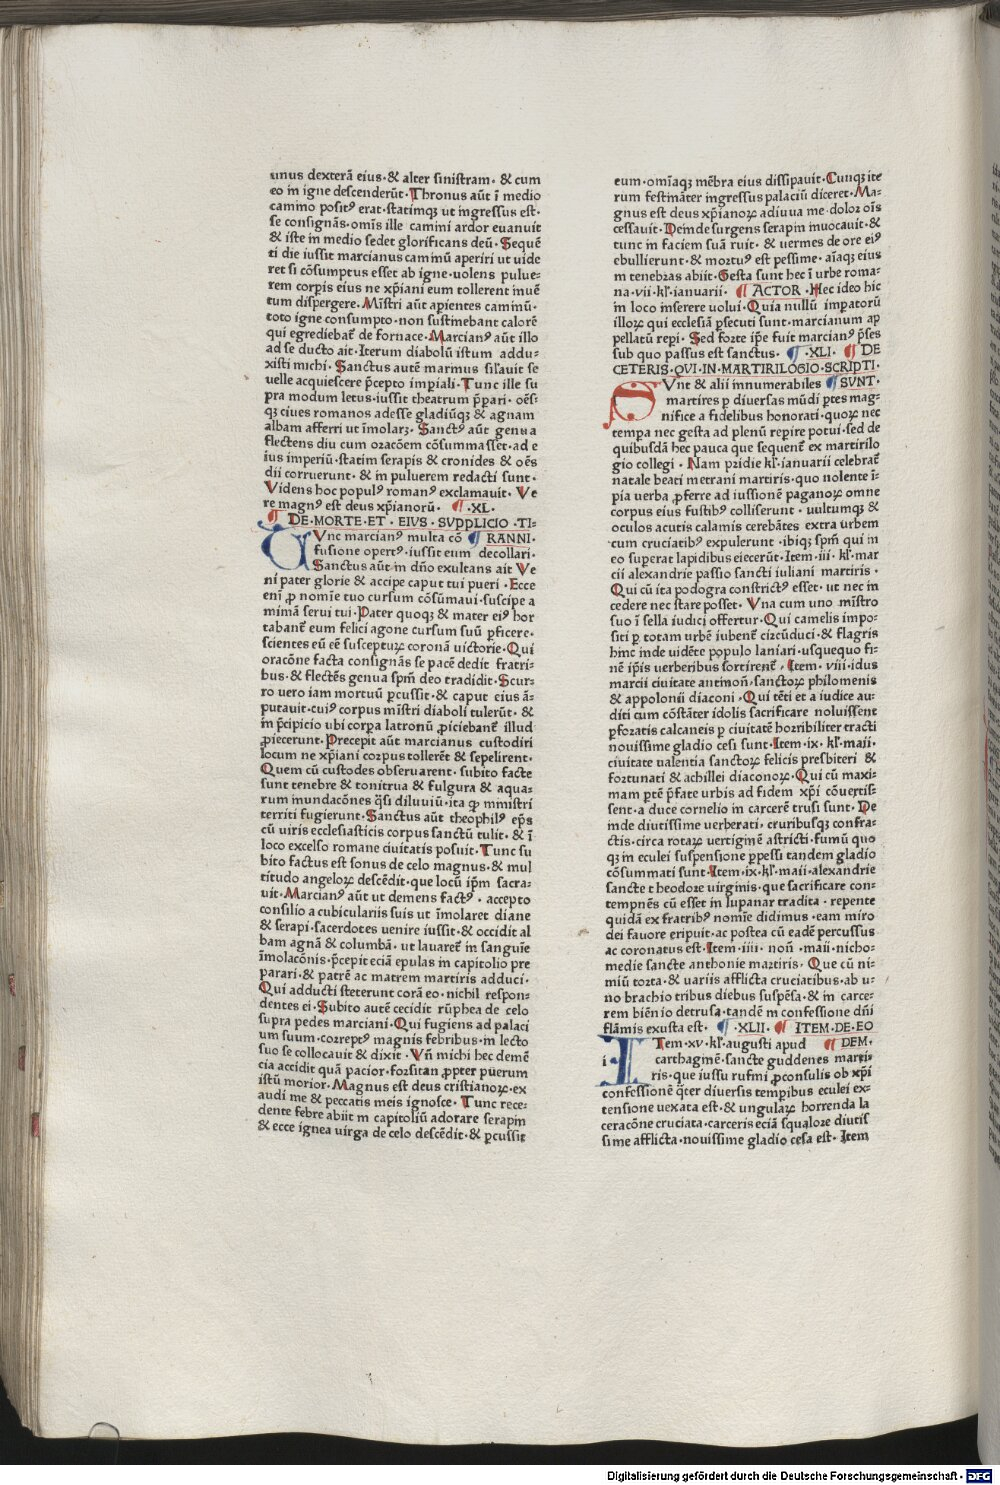 unus dexterā eius·& alter sinistram·& cum
eo in igne descenderūt·Thronus aūt ī medio
camino positꝰ erat·statimqꝫ ut ingressus est·
se consignās·omīs ille camini ardor euanuit
& iste in medio sedet glorificans deū·Sequē
ti die iussit marcianus caminū aperiri ut uide
ret si cōsumptus esset ab igne·uolens pulue-
rem corpis eius ne xp̄iani eum tollerent inuē
tum dispergere·Mīstri aūt apientes caminū·
toto igne consumpto·non sustinebant calorē
qui egrediebat̄ de fornace·Marcianꝰ aūt illo
ad se ducto ait·Iterum diabolū istum addu-
xisti michi·Sanctus autē marmus silauit se
uelle acquiescere p̄cepto impiali·Tunc ille su
pra modum letus·iussit theatrum p̄pari·oēs-
qꝫ ciues romanos adesse gladiūqꝫ & agnam
albam afferri ut īmolarꝫ·Sanctꝰ aūt genua
flectens diu cum ozacōem cōsummasset·ad e
ius imperiū·statim serapis & cronides & oēs
dii corruerunt·& in puluerem redacti sunt·
Videns hoc populꝰ romanꝰ exclamauit·Ve
re magnꝰ est deus xp̄ianorū·¶·XL·
¶ DE·MORTE·ET·EIVS·SVPPLICIO·TI-
TVnc marcianꝰ multa cō ¶ RANNI·
fusione opertꝰ·iussit eum decollari·
Sanctus aūt in dn̄o exultans ait Ve
ni pater glorie & accipe caput tui pueri·Ecce
enī ꝓ nomīe tuo cursum cōsūmaui·suscipe a
mimā serui tui·Pater quoqꝫ & mater eiꝰ hor
tabant̄ eum felici agone cursum suū ꝑficere·
scientes eū eē susceptuꝝ coronā uictorie·Qui
oracōne facta consignās se pacē dedit fratri-
bus·& flectēs genua spm̄ deo tradidit·Scur-
ro uero iam mortuū ꝑcussit·& caput eius ā-
putauit·cuiꝰ corpus mīstri diaboli tulerūt·&
in p̄cipicio ubi corpa latronū ꝓiciebant̄ illud
ꝓiecerunt·Precepit aūt marcianus custodiri
locum ne xp̄iani corpus tollerēt & sepelirent·
Quem cū custodes obseruarent·subito facte
sunt tenebre & tonitrua & fulgura & aqua-
rum inundacōnes q̄si diluuiū·ita ꝙ ministri
territi fugierunt·Sanctus aūt theophilꝰ ep̄s
cū uiris ecclesiasticis corpus sanctū tulit·& ī
loco excelso romane ciuitatis posuit·Tunc su
bito factus est sonus de celo magnus·& mul
titudo angeloꝝ descēdit·que locū ip̄m sacra-
uit·Marcianꝰ aūt ut demens factꝰ·accepto
consilio a cubiculariis suis ut īmolaret diane
& serapi·sacerdotes uenire iussit·& occidit al
bam agnā & columbā·ut lauaret̄ in sanguīe
īmolacōnis·p̄cepit eciā epulas in capitolio pre
parari·& patrē ac matrem martiris adduci·
Qui adducti steterunt corā eo·nichil respon-
dentes ei·Subito autē cecidit rūphea de celo
supra pedes marciani·Qui fugiens ad palaci
um suum·cozreptꝰ magnis febribus·in lecto
suo se collocauit & dixit·Vn̄ michi hec demē
cia accidit quā pacior·fozsitan ꝓpter puerum
istū morior·Magnus est deus cristianoꝝ·ex
audi me & peccatis meis ignosce·Tunc rece-
dente febre abiit in capitoliū adorare serapin
& ecce ignea uirga de celo descēdit·& ꝑcussit
eum·omīaqꝫ mēbra eius dissipauit·Cunqꝫ ite
rum festināter ingressus palaciū diceret·Ma-
gnus est deus xp̄ianoꝝ adiuua me·dolor oīs
cessauit·Deinde surgens serapin inuocauit·&
tunc in faciem suā ruit·& uermes de ore eiꝰ
ebullierunt·& mortuꝰ est pessime·aīaqꝫ eius
in tenebras abiit·Gesta sunt hec ī urbe roma-
na·vii·kl̄·ianuarii·¶ ACTOR·Hec ideo hic
in loco inserere uolui·Quia nullū īmpatorū
illoꝝ qui ecclesiā ꝑsecuti sunt·marcianum ap
pellatū repi·Sed forte ip̄e fuit marcianꝰ p̄ses
sub quo passus est sanctus·¶·XLI·¶ DE
CETERIS·QVI·IN·MARTIRILOGIO·SCRIPTI·
SVnt & alii innumerabiles ¶ SVNT·
martires ꝑ diuersas mūdi ptes mag-
nifice a fidelibus honorati·quoꝝ nec
tempa nec gesta ad plenū repire potui·sed de
quibusdā hec pauca que sequent̄ ex martirilo
gio collegi·Nam pridie kl̄·ianuarii celebrat̄
natale beati metrani martiris·quo nolente ī-
pia uerba ꝓferre ad iussionē paganoꝝ omne
corpus eius fustibꝰ colliserunt·uultumqꝫ &
oculos acutis calamis cerebātes extra urbem
cum cruciatibꝰ expulerunt·ibiqꝫ spm̄ qui in
eo superat lapidibus eiecerūt·Item·iii·kl̄·mar
cii alexandrie passio sancti iuliani martiris·
Qui cū ita podogra constrictꝰ esset·ut nec in
cedere nec stare posset·Vna cum uno mīstro
suo ī sella iudici offertur·Qui camelis impo-
siti ꝑ totam urbē iubent̄ circūduci·& flagris
hinc inde uidēte populo laniari·usquequo fi-
nē ip̄is uerberibus sortirent̄·Item·viii·idus
marcii ciuitate antinon̄·sanctoꝝ philomenis
& appolonii diaconi·Qui tēti et a iudice au-
diti cum cōstāter idolis sacrificare noluissent
ꝑforatis calcaneis ꝑ ciuitatē horribiliter tracti
nouissime gladio cesi sunt·Item·ix·kl̄·maii·
ciuitate ualentia sanctoꝝ felicis presbiteri &
fortunati & achillei diaconoꝝ·Qui cū maxi-
mam ptē p̄fate urbis ad fidem xp̄i cōuertis-
sent·a duce cornelio in carcerē trusi sunt·De
inde diutissime uerberati·cruribusqꝫ confra-
ctis·circa rotaꝝ uertiginē astricti·fumū quo
qꝫ in eculei suspensione ꝑpessi tandem gladio
cōsummati sunt·Item·ix·kl̄·maii·alexandrie
sancte theodore uirginis·que sacrificare con-
tempnēs cū esset in lupanar tradita·repente
quidā ex fratribꝰ nomīe didimus·eam miro
dei fauore eripuit·ac postea cū eadē percussus
ac coronatus est·Item·iiii·non̄·maii·nicho-
medie sancte anthonie martiris·Que cū ni-
miū torta·& uariis afflicta cruciatibus·ab u-
no brachio tribus diebus suspēsa·& in carce-
rem biēnio detrusa·tandē in confessione dn̄i
flāmis exusta est·¶·XLII·¶ ITEM·DE·EO
ITem·xv·kl̄·augusti apud ¶ DEM·
carthaginē·sancte guddenes marti-
ris·que iussu rufini ꝓconsulis ob xp̄i
confessionē q̄ter diuersis temꝑibus eculei ex-
tensione uexata est·& ungulaꝝ horrenda la
ceracōne cruciata·carceris eciā squalore diutis
sime afflicta·nouissime gladio cesa est·Item
Digitalisierung gefördert durch die Deutsche Forschungsgemeinschaft - DFG